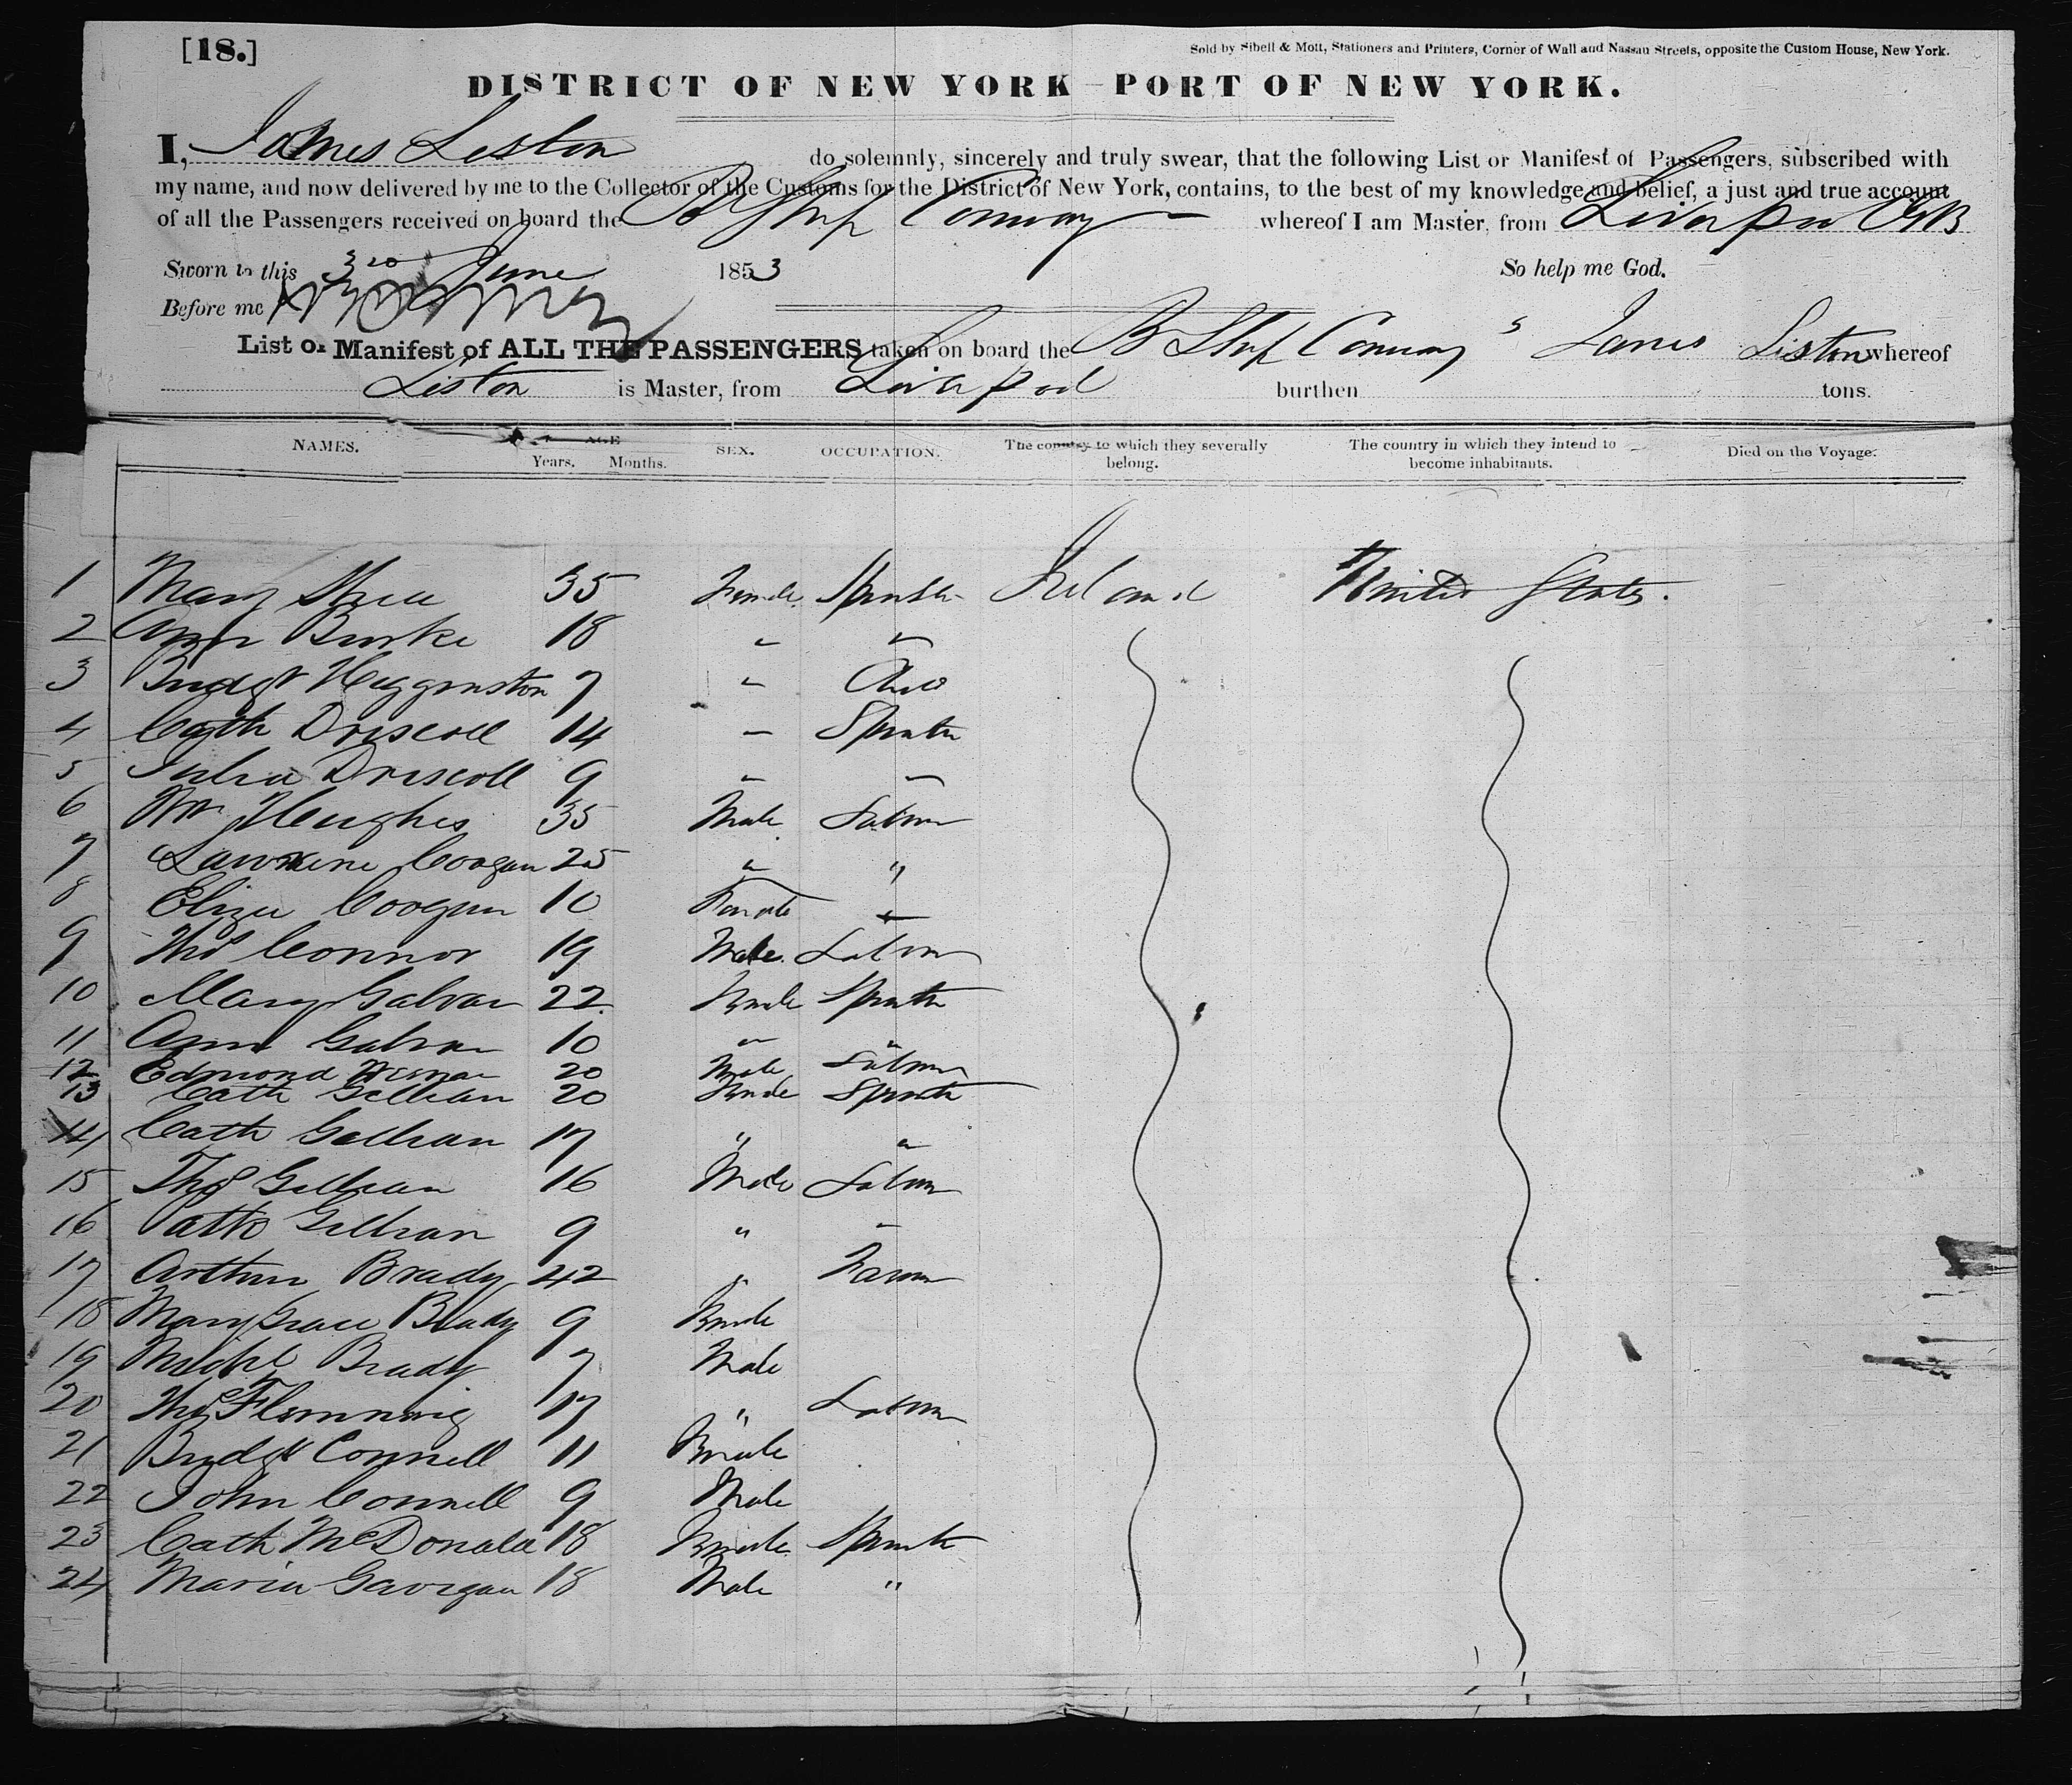 [18.]
Sold by Sibell & Mott, Stationers and Printers, Corner of Wall and Nassau Streets, opposite the Custom House, New York.
DISTRICT OF NEW YORK PORT OF NEW YORK.
I, James Liston do solemnly, sincerely and truly swear, that the following List or Manifest of Passengers, subscribed with
my name, and now delivered by me to the Collector of the Customs for the District of New York, contains, to the best of my knowledge and belief, a just and true account
of all the Passengers received on board the Br Ship Conway whereof I am Master, from Liverpool GB
Sworn to this June 1853 So help me God.
Before me
List or Manifest of ALL THE PASSENGERS taken on board the B Ship Conway James Liston whereof
Liston is Master, from Liverpool burthen tons.
NAMES. AGE Years. Months. SEX. OCCUPATION. The country to which they severally belong. The country in which they intend to become inhabitants. Died on the Voyage.
1 Mary Shea 35 Female Spinster Ireland United States.
2 Ann Burke 18 " "
3 Bridgt Higginston 7 " Child
4 Cath Driscoll 14 " Spinster
5 Julia Driscoll 9 " "
6 Wm Hughes 35 Male Labour
7 Lawrence Coogan 25 " "
8 Eliza Coogan 10 Female "
9 Thos Connor 19 Male Labour
10 Mary Galvan 22 Female Spinster
11 Ann Galvan 10 " "
12 Edmond 20 Male Labour
13 Cath Gillean 20 Female Spinster
14 Cath Gillean 17 " "
15 Thos Gillean 16 Male Labour
16 Gillean 9 " "
17 Arthur Brady 42 " Farmer
18 Mary Grace Brady 9 Female
19 Michl Brady 7 Male
20 Thos Flemming 17 " Labour
21 Bridgt Connell 11 Female
22 John Connell 9 Male
23 Cath McDonald 18 Female Spinster
24 Maria Gavigan 18 Male "